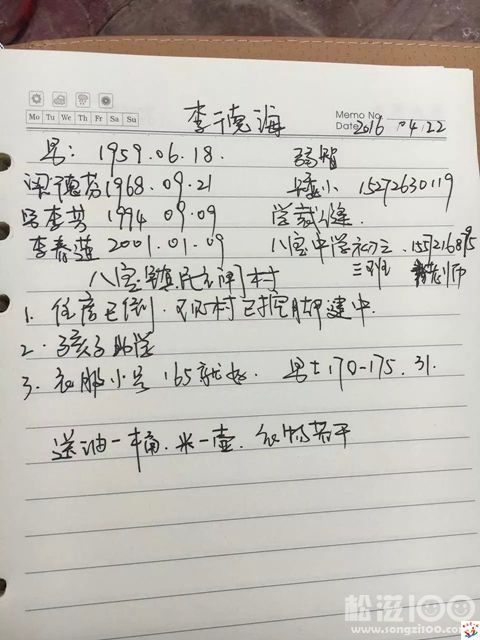 李德海
Memo No.
Mo Tu We Th Fr Sa Su
Date 2016.04.22
男: 1959.06.18. 弱智
梁德芬 1968.09.21 矮小 15272630119
李芳 1994 09.09 学裁缝
李春莲 2001.01.09 八宝中学初三.
三班
八宝镇 村
1. 住房已倒. 村已 建中.
2. 孩子助学
3. 衣服小号 165就好. 男士170-175. 31.
送油一桶. 米一壶. 衣物若干
松滋100
www.songzi100.com